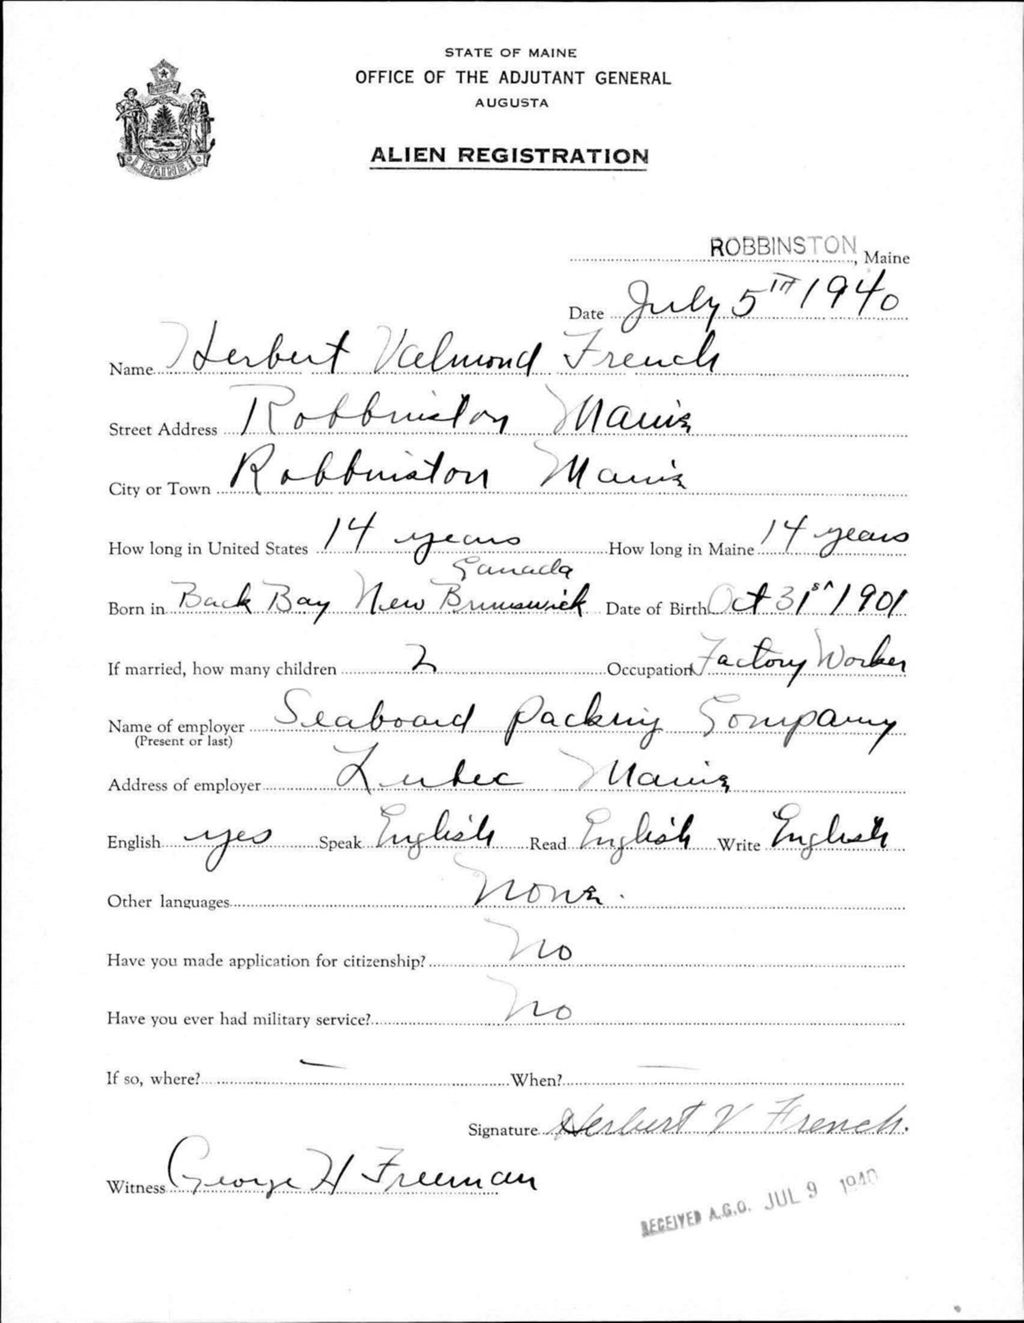 STATE OF MAINE
OFFICE OF THE ADJUTANT GENERAL
AUGUSTA
ALIEN REGISTRATION
MAINE
ROBBINSTON, Maine
Date July 5TH 1940
Name Herbert Valmond French
Street Address Robbinston Maine
City or Town Robbinston Maine
How long in United States 14 years How long in Maine 14 years
Canada
Born in Back Bay New Brunswick Date of Birth Oct 31st 1901
If married, how many children 2 Occupation Factory Worker
Name of employer Seaboard Packing Company
(Present or last)
Address of employer Lubec Maine
English yes Speak English Read English Write English
Other languages None.
Have you made application for citizenship? No
Have you ever had military service? No
If so, where? — When? —
Signature Herbert V French.
Witness George H Freeman
RECEIVED A.G.O. JUL 9 1940